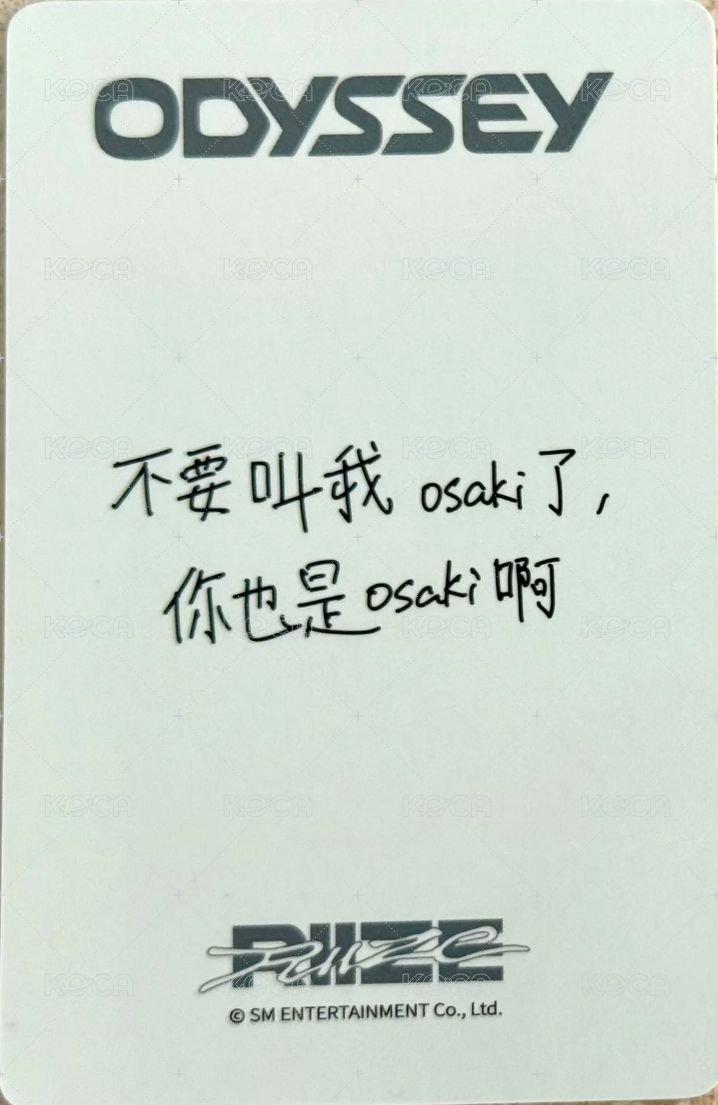 ODYSSEY
不要叫我 osaki了,
你也是osaki啊
RIIZE
© SM ENTERTAINMENT Co., Ltd.
KOCA